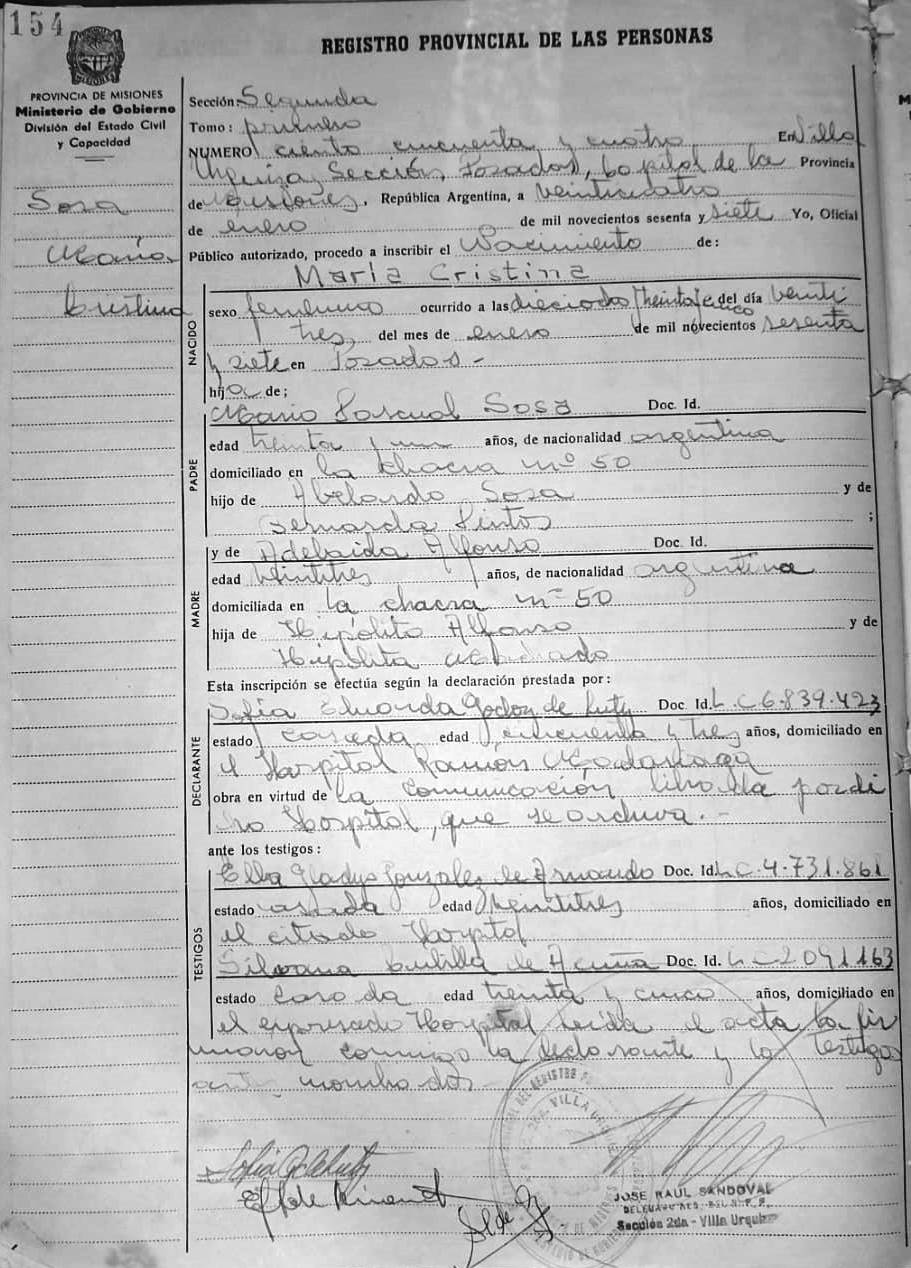 154
REGISTRO PROVINCIAL DE LAS PERSONAS
PROVINCIA DE MISIONES
Ministerio de Gobierno
División del Estado Civil
y Capacidad
Sosa
María
Cristina
Sección: Segunda
Tomo: primero
NUMERO ciento cincuenta y cuatro En Villa
Urquiza, Sección, Posadas, Capital de la Provincia
de Misiones, República Argentina, a veinticuatro
de enero de mil novecientos sesenta y siete Yo, Oficial
Público autorizado, procedo a inscribir el Nacimiento de:
María Cristina
NACIDO
sexo femenino ocurrido a las dieciocho treinta y cinco del día veinti
tres, del mes de enero de mil novecientos sesenta
y siete en Posadas -
hija de;
PADRE
Mario Pascual Sosa Doc. Id.
edad treinta y un años, de nacionalidad argentina
domiciliado en la chacra nº 50
hijo de Abelardo Sosa y de
Bernarda Pintos ;
MADRE
y de Adelaida Alfonso Doc. Id.
edad veintitres años, de nacionalidad argentina
domiciliada en la chacra nº 50
hija de Hipólito Alfonso y de
Hipólita
Esta inscripción se efectúa según la declaración prestada por:
DECLARANTE
Sofía Eduarda Godoy de Doc. Id. L.C 6.839.423
estado casada edad cincuenta y tres años, domiciliado en
el Hospital Ramón Madariaga
obra en virtud de la comunicación librada por di
cho Hospital, que se archiva. -
ante los testigos:
TESTIGOS
Elba Gladys Gonzalez de Doc. Id. L.C. 4.731.861
estado casada edad veintitres años, domiciliado en
el citado Hospital
Silvana de Acuña Doc. Id. L.C 2091163
estado casada edad treinta y cinco años, domiciliado en
el expresado Hospital leída el acta la fir
maron conmigo la declarante y los testigos
antes nombrados
JOSE RAUL SANDOVAL
Sección 2da - Villa Urquiza